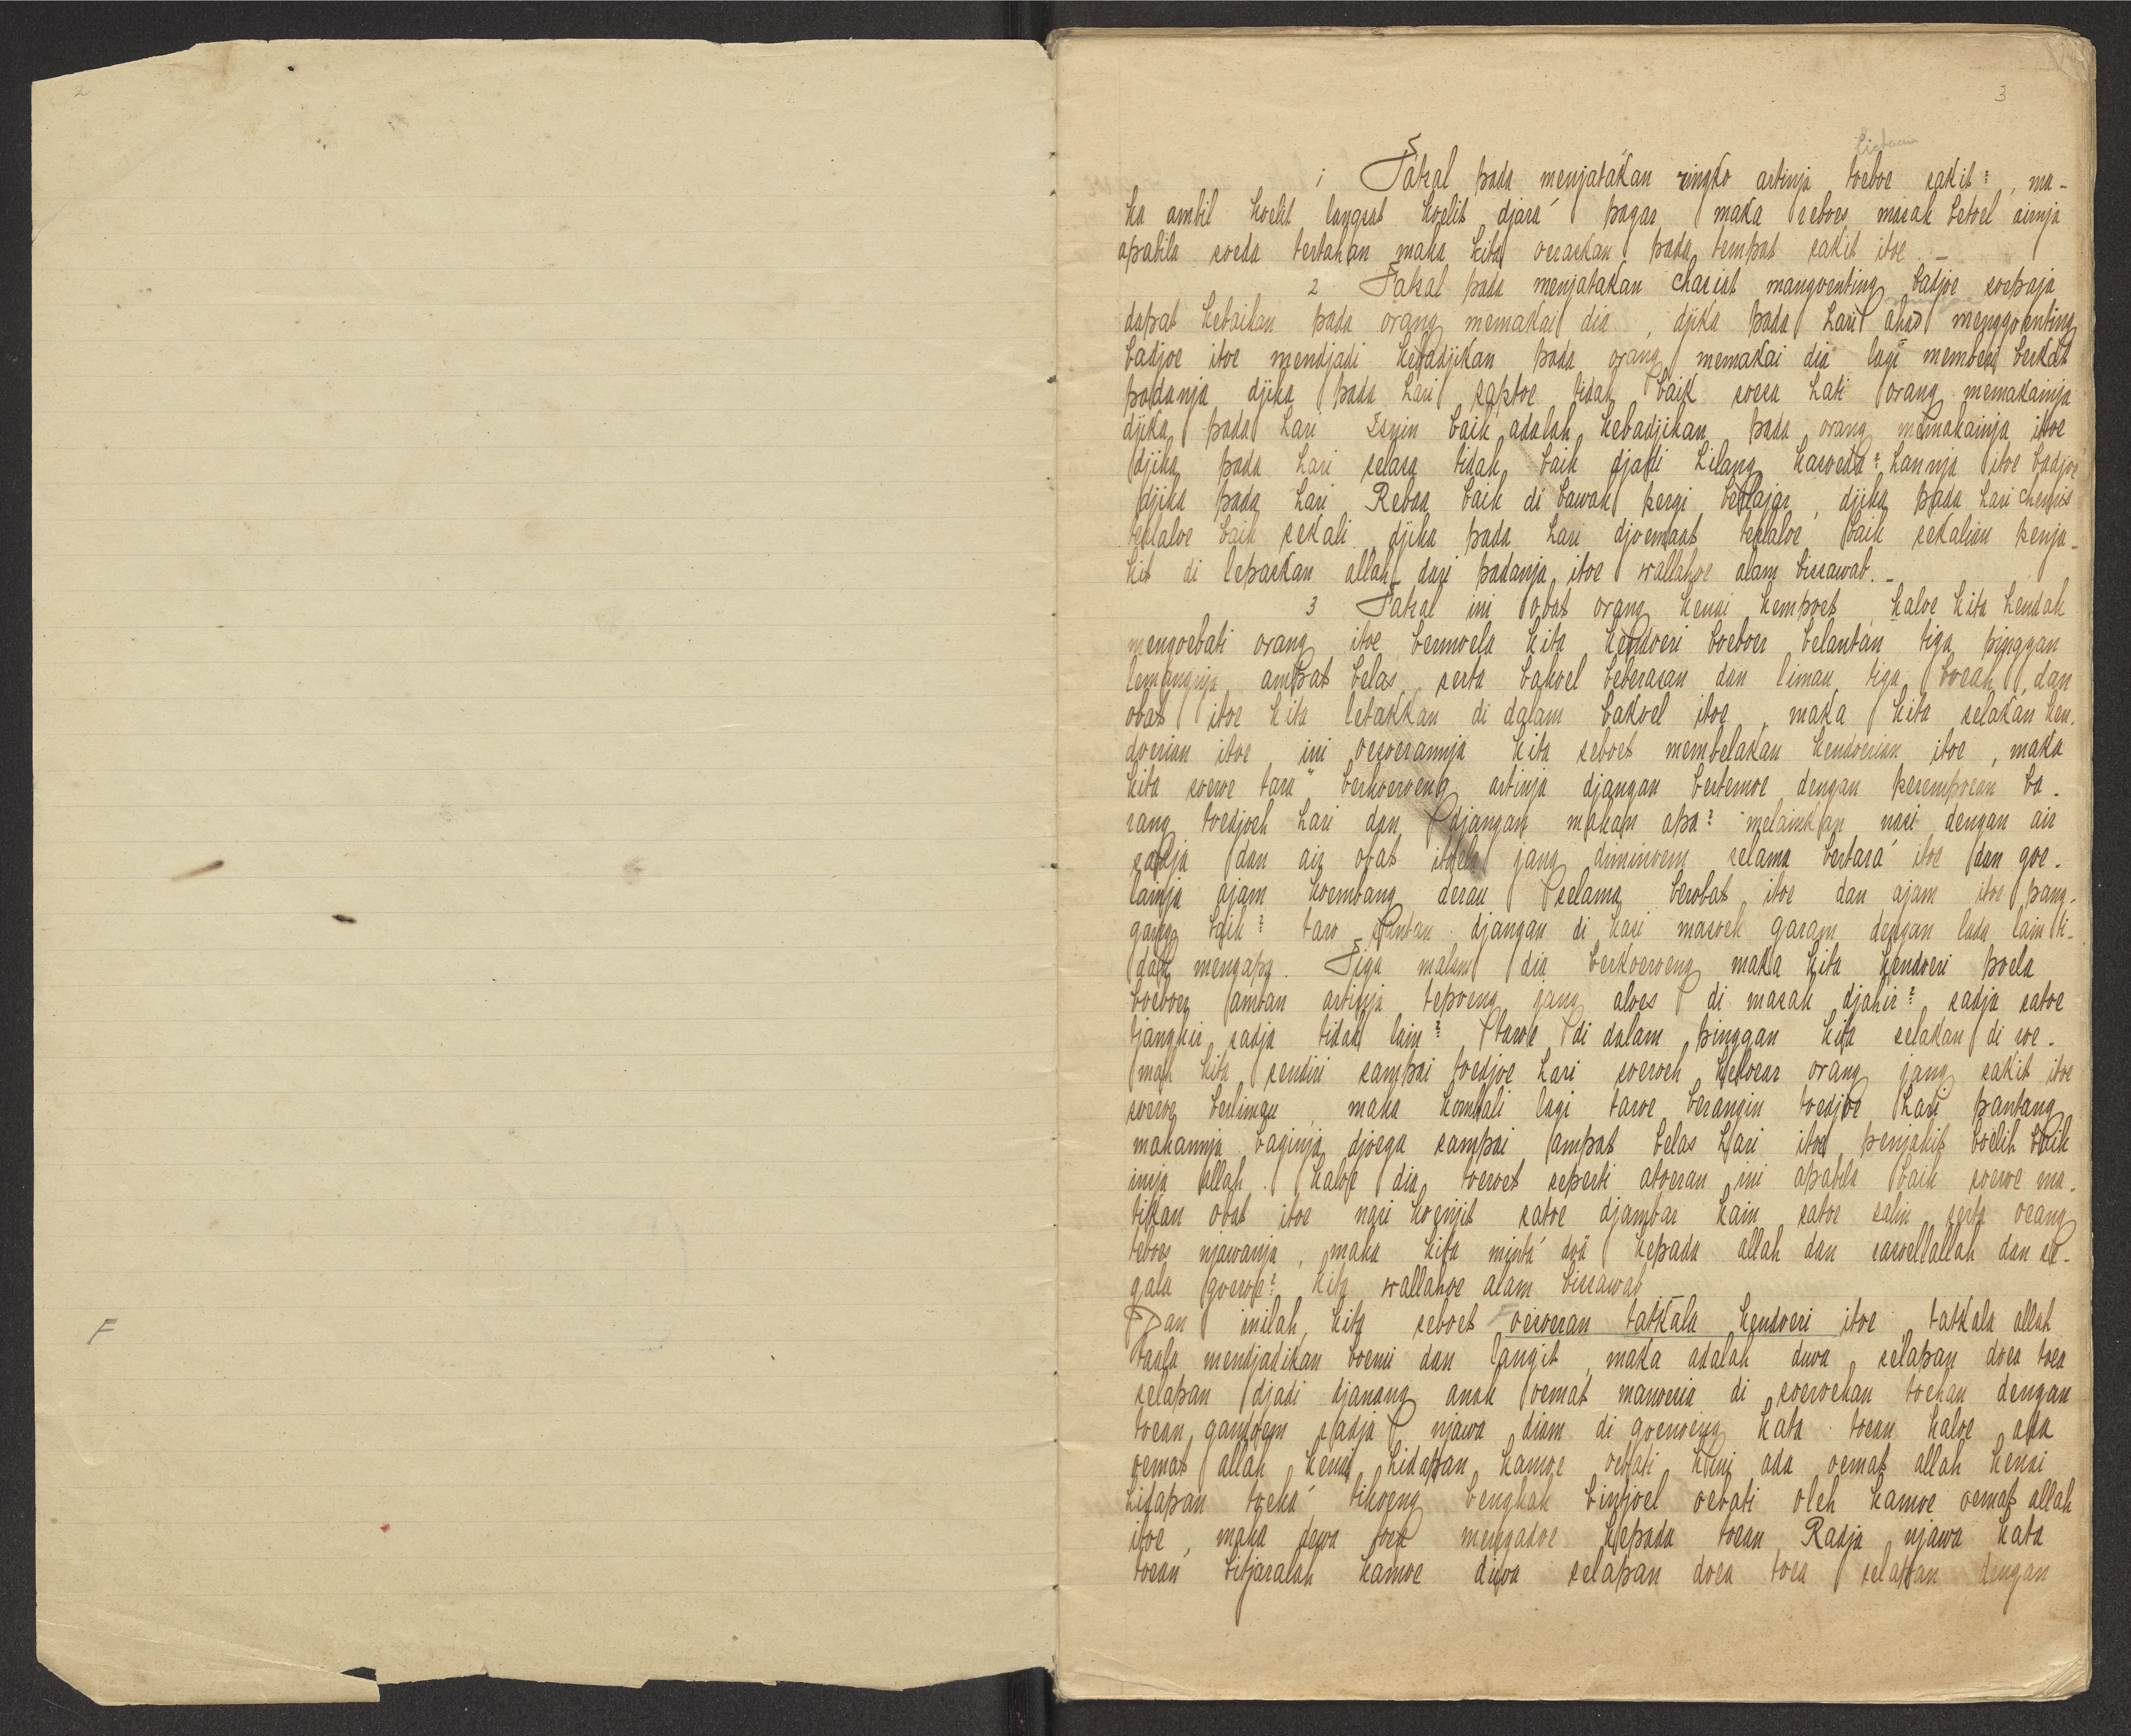 2
3
1 Fatsal pada menjatakan ringko artinja toeboe sakit², ma-
ka ambil koelit langsat koelit djara' pagar maka reboes masak betoel airnja
apabila soeda tertahan maka kita oeraskan pada tempat sakit itoe. –
2 Fatsal pada menjatakan chasiat mangoenting badjoe soepaja
dapat kebaikan pada orang memakai dia, djika pada hari ahad menggoenting
badjoe itoe mendjadi kebadjikan pada orang memakai dia lagi memberi berkat
padanja djika pada hari saptoe tidak baik soesa hati orang memakainja
djika pada hari Isnin baik adalah kebadjikan pada orang memakainja itoe
djika pada hari selasa tidak baik djadi hilang kasoeda²hannja itoe badjoe
djika pada hari Rebaa baik di bawah pergi berlajar, djika pada hari chemis
terlaloe baik sekali djika pada hari djoemaat terlaloe baik sekalian penja-
kit di lepaskan allah dari padanja itoe wallahoe alam bissawab. –
3 Fatsal ini obat orang kenai kempoet, kaloe kita hendak
mengoebati orang itoe bermoela kita kendoeri boeboer belantan tiga pinggan
lemangnja ampat belas serta bakoel beberasan dan limau tiga boeah, dan
obat itoe kita letakkan di dalam bakoel itoe, maka kita selakan ken-
doerian itoe ini oesoerannja kita seboet membelakan kendoerian itoe, maka
kita soeroe tara" berkoeroeng artinja djangan bertemoe dengan perempoean ba-
rang toedjoeh hari dan djangan makan apa² melainkan nasi dengan air
sadja dan air obat itoela jang diminoem selama bertara' itoe dan goe-
lainja ajam koembang derau selama berobat itoe dan ajam itoe pang-
gang baik² taro santan djangan di kasi masoek garam dengan lada lain ti-
dak mengapa. Tiga malam dia berkoeroeng maka kita kendoeri poela
boeboer amban artinja tepoeng jang aloes di masak djahir² sadja satoe
tjangkir sadja tidak lain² taroe di dalam pinggan kita selakan di roe-
mah kita sendiri sampai toedjoe hari soeroeh keloear orang jang sakit itoe
soeroe berlimau, maka kombali lagi taroe berangin toedjoe hari pantang
makannja baginja djoega sampai ampat belas hari itoe penjakit boelih baik
insja allah. kaloe dia toeroet seperti atoeran ini apabila baik soeroe ma-
tikan obat itoe nasi koenjit satoe djambar kain satoe salin serta oeang
teboes njawanja, maka kita minta' doä kepada allah dan rasoellallah dan se-
gala goeroe² kita wallahoe alam bissawab
Dan inilah kita seboet oesoeran tatkala kendoeri itoe tatkala allah
F
taala mendjadikan boemi dan langit, maka adalah duwa selapan doea toea
selapan djadi djanang anak oemat manoesia di soeroehan toehan dengan
toean gandoem sadja njawa diam di goenoeng kata toean kaloe ada
oemat allah kenai hidapan kamoe oebati kini ada oemat allah kenai
hidapan toeka' tikoeng bengkak bintjoel oebati oleh kamoe oemat allah
itoe, maka dewa toea mengadoe kepada toean Radja njawa kata
toean bitjaralah kamoe duwa selapan doea toea selapan dengan